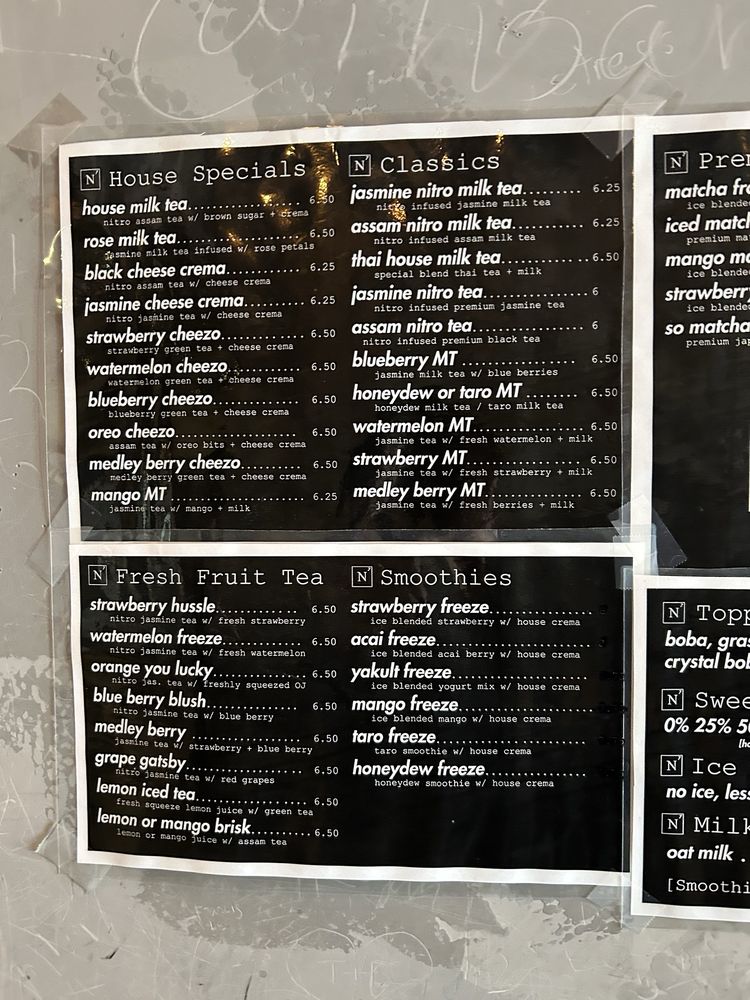 N House Specials
house milk tea.................... 6.50
nitro assam tea w/ brown sugar + crema
rose milk tea...................... 6.50
jasmine milk tea infused w/ rose petals
black cheese crema............ 6.25
nitro assam tea w/ cheese crema
jasmine cheese crema......... 6.25
nitro jasmine tea w/ cheese crema
strawberry cheezo............. 6.50
strawberry green tea + cheese crema
watermelon cheezo............ 6.50
watermelon green tea + cheese crema
blueberry cheezo............... 6.50
blueberry green tea + cheese crema
oreo cheezo..................... 6.50
assam tea w/ oreo bits + cheese crema
medley berry cheezo.......... 6.50
medley berry green tea + cheese crema
mango MT....................... 6.25
jasmine tea w/ mango + milk
N Classics
jasmine nitro milk tea......... 6.25
nitro infused jasmine milk tea
assam nitro milk tea.......... 6.25
nitro infused assam milk tea
thai house milk tea............ 6.50
special blend thai tea + milk
jasmine nitro tea.............. 6
nitro infused premium jasmine tea
assam nitro tea................ 6
nitro infused premium black tea
blueberry MT.................. 6.50
jasmine milk tea w/ blue berries
honeydew or taro MT........ 6.50
honeydew milk tea / taro milk tea
watermelon MT............... 6.50
jasmine tea w/ fresh watermelon + milk
strawberry MT................ 6.50
jasmine tea w/ fresh strawberry + milk
medley berry MT............. 6.50
jasmine tea w/ fresh berries + milk
N
matcha
ice blended
iced
premium
mango
ice blended
strawberry
ice blended
so matcha
premium
N Fresh Fruit Tea
strawberry hussle............ 6.50
nitro jasmine tea w/ fresh strawberry
watermelon freeze........... 6.50
nitro jasmine tea w/ fresh watermelon
orange you lucky............. 6.50
nitro jas. tea w/ freshly squeezed OJ
blue berry blush.............. 6.50
nitro jasmine tea w/ blue berry
medley berry ................ 6.50
jasmine tea w/ strawberry + blue berry
grape gatsby................. 6.50
nitro jasmine tea w/ red grapes
lemon iced tea............... 6.50
fresh squeeze lemon juice w/ green tea
lemon or mango brisk..........6.50
lemon or mango juice w/ assam tea
N Smoothies
strawberry freeze...............
ice blended strawberry w/ house crema
acai freeze......................
ice blended acai berry w/ house crema
yakult freeze...................
ice blended yogurt mix w/ house crema
mango freeze..................
ice blended mango w/ house crema
taro freeze.....................
taro smoothie w/ house crema
honeydew freeze...............
honeydew smoothie w/ house crema
N
boba,
crystal
N
0% 25%
N Ice
no ice,
N
oat milk .